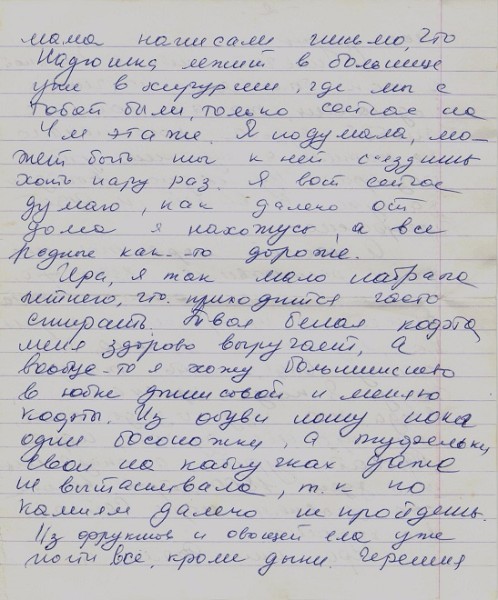 мама написали письмо, что
Надюшка лежит в больнице
уже в хирургии, где мы с
тобой были, только сейчас на
4м этаже. Я подумала, мо-
жет быть ты к ней съездишь
хоть пару раз. Я вот сейчас
думаю, как далеко от
дома я нахожусь, а все
родные как-то дороже.
Ира, я так мало набрала
летнего, что приходится часто
стирать. Твоя белая кофта
меня здорово выручает, а
вообще-то я хожу большинство
в юбке джинсовой и меняю
кофты. Из обуви ношу пока
одни босоножки, а туфельки
свои на каблучках даже
не вытаскивала, т.к по
камням далеко не пройдешь.
Из фруктов и овощей ела уже
почти всё, кроме дыни. Черешня